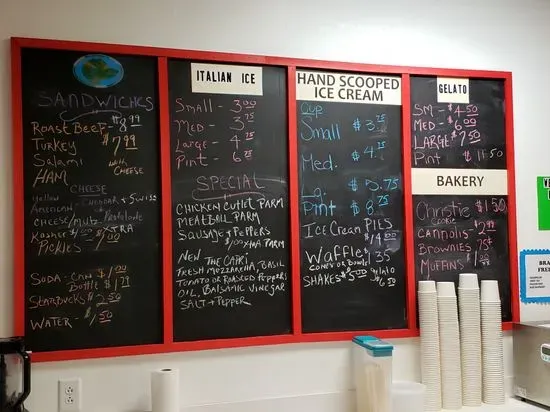 SANDWICHES
ROAST BEEF - $8.99
TURKEY $7.99
SALAMI with CHEESE
HAM
CHEESE
Yellow
American - CHEDDAR & SWISS
CHEESE/Mutz Provolone
Kosher
PICKLES
SODA - CAN $1.00
BOTTLE $1.75
STARBUCKS $2.50
WATER - $1.50
ITALIAN ICE
Small - 3.00
Med - 3.75
Large - 4.75
Pint - 6.75
SPECIAL
CHICKEN CUTLET PARM
MEATBALL PARM
SAUSAGE & PEPPERS
$1.00 XTRA PARM
NEW THE CAPRI
FRESH MOZZARELLA, BASIL
TOMATO OR ROASTED PEPPERS
OIL BALSAMIC VINEGAR
SALT + PEPPER
HAND SCOOPED
ICE CREAM
Cup
Small $3.75
Med. $4.75
Lg. $5.75
Pint $8.75
ICE CREAM PIES
$14.00
WAFFLES
CONE OR BOWL $1.35
SHAKES $5.00 gelato $6.50
GELATO
SM - $4.50
MED - $6.00
LARGE $7.50
Pint $11.50
BAKERY
Christie $1.50
COOKIE
CANNOLIS $2.00
BROWNIES 75¢
MUFFINS $2.00